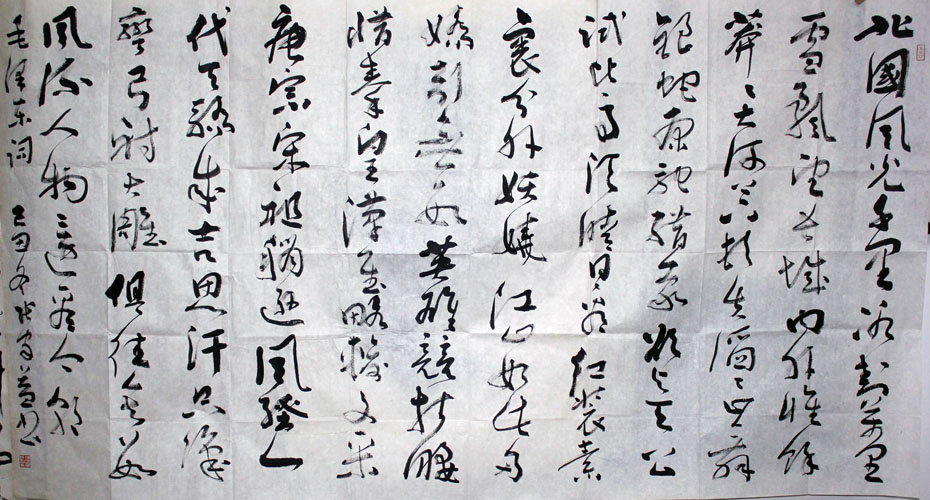 北國風光千里冰封萬里
雪飄望長城內外惟餘
莽〻大河上下頓失滔〻山舞
銀蛇原馳蠟象欲與天公
試比高須晴日看紅裝素
裹分外妖嬈江山如此多
嬌引無數英雄競折腰
惜秦皇漢武略輸文采
唐宗宋祖稍遜風騷一
代天驕成吉思汗只識
彎弓射大雕俱往矣數
風流人物還看今朝
毛澤東詞 己丑冬